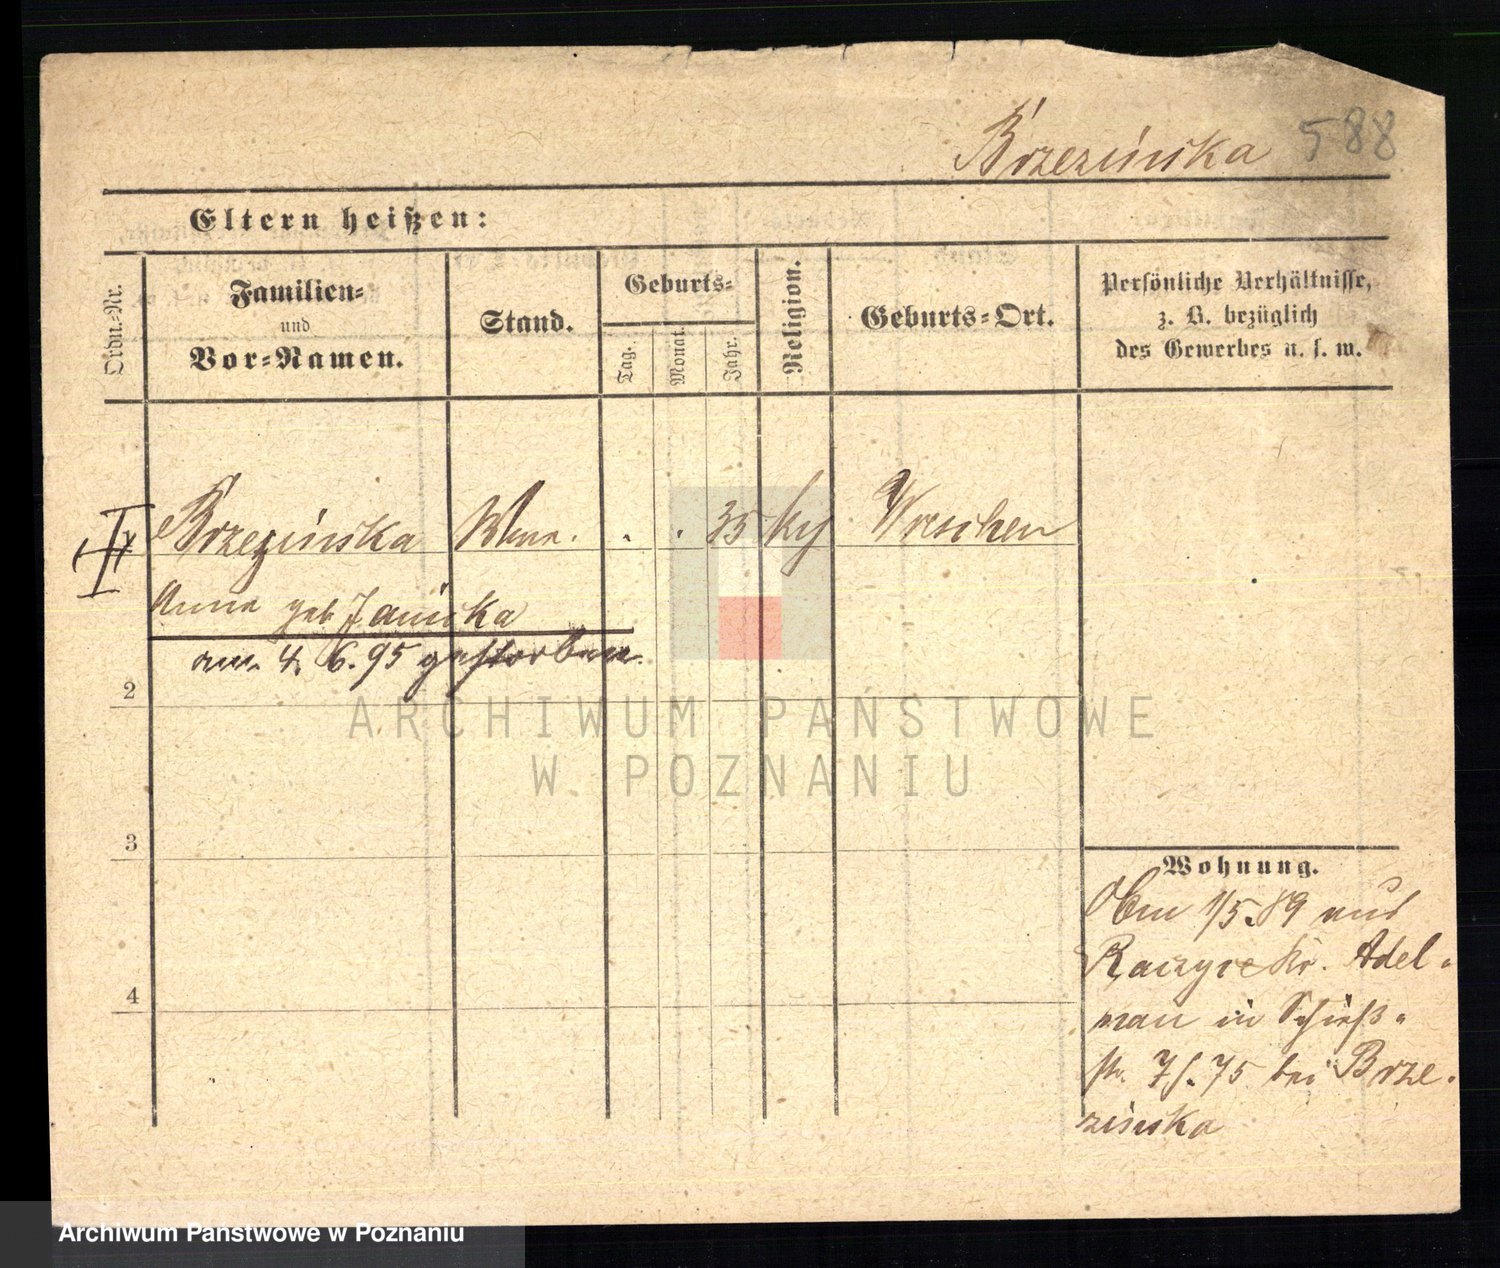 Brzezinska 588
Eltern heißen:
Ordn.-Nr.
Familien-
und
Vor-Namen.
Stand.
Geburts-
Tag.
Monat.
Jahr.
Religion.
Geburts-Ort.
Persönliche Verhältnisse,
z. B. bezüglich
des Gewerbes u. s. w.
Brzezinska Wwe. . . 35 Wreschen
Anna geb
am 4. 6. 95 gestorben.
2
3
4
Wohnung.
1/5.89 aus
Kr. Adel-
nau in Schieß-
str. 7 f. 75 bei Brze-
zinska
ARCHIWUM PAŃSTWOWE
W POZNANIU
Archiwum Państwowe w Poznaniu